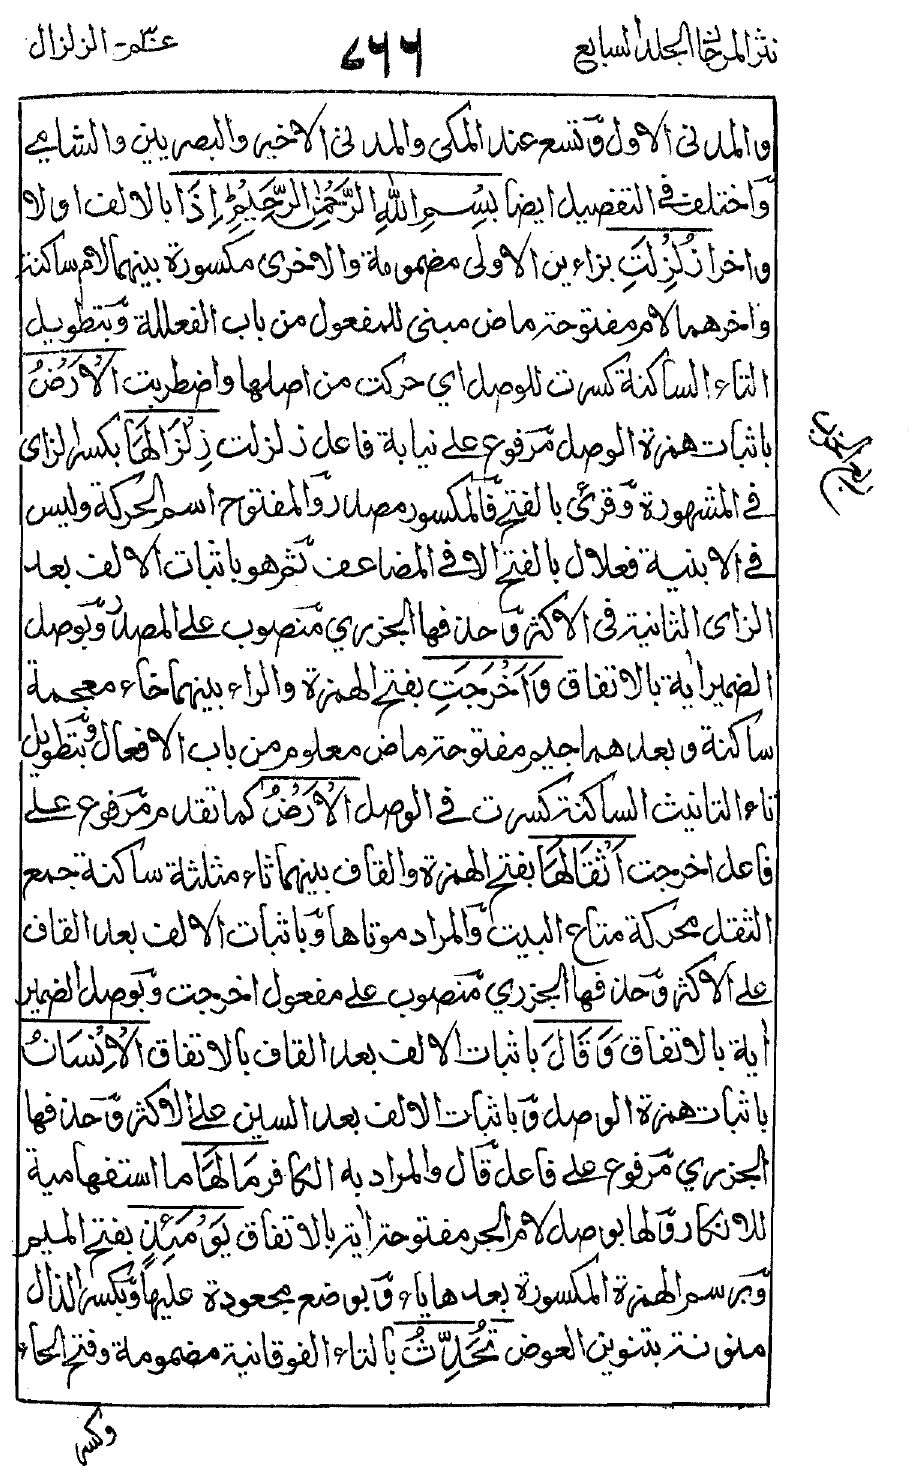 نثر المرجان الجلد السابع ٧٦٦ عمّ ۳۰ الزلزال
والمدنى الاول وتسع عند المكى والمدنى الاخير والبصريين والشامى
واختلف فى التفصيل ايضا بِسْمِ اللهِ الرَّحْمٰنِ الرَّحِيْمِ اِذَا بالالف اولا
واخرا زُلْزِلَتِ بزاءين الاولى مضمومة والاخرى مكسورة بينهما لام ساكنة
واخرهما لام مفتوحة ماض مبنى للمفعول من باب الفعللة وبتطويل
التاء الساكنة كسرت للوصل اي حركت من اصلها واضطربت الْاَرْضُ
باثبات همزة الوصل مرفوع على نيابة فاعل زلزلت زِلْزَالَهَا بكسر الزاى
فى المشهورة وقرئ بالفتح فالمكسور مصدر والمفتوح اسم الحركة وليس
فى الابنية فعلال بالفتح الا فى المضاعف ثم هو باثبات الالف بعد
الزاى الثانية فى الاكثر وحذفها الجزري منصوب على المصدر وبوصل
الضمير اية بالاتفاق وَاَخْرَجَتِ بفتح الهمزة والراء بينهما خاء معجمة
ساكنة وبعدهما جيم مفتوحة ماض معلوم من باب الافعال وبتطويل
تاء التانيث الساكنة كسرت فى الوصل الْاَرْضُ كما تقدم مرفوع على
فاعل اخرجت اَثْقَالَهَا بفتح الهمزة والقاف بينهما ثاء مثلثة ساكنة جمع
الثقل محركة متاع البيت والمراد موتاها وباثبات الالف بعد القاف
على الاكثر وحذفها الجزري منصوب على مفعول اخرجت وبوصل الضمير
اية بالاتفاق وَقَالَ باثبات الالف بعد القاف بالاتفاق الْاِنْسَانُ
باثبات همزة الوصل وباثبات الالف بعد السين على الاكثر وحذفها
الجزري مرفوع على فاعل قال والمراد به الكافر مَا لَهَا ما استفهامية
للانكار ولها بوصل لام الجر مفتوحة اية بالاتفاق يَوْمَئِذٍ بفتح الميم
وبرسم الهمزة المكسورة بعدها ياء وبوضع مجعودة عليها وبكسر الذال
منونة بتنوين العوض تُحَدِّثُ بالتاء الفوقانية مضمومة وفتح الحاء
وكسر
ربع الحزب